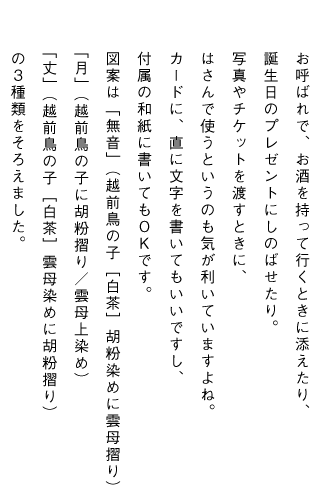 お呼ばれで、お酒を持って行くときに添えたり、
誕生日のプレゼントにしのばせたり。
写真やチケットを渡すときに、
はさんで使うというのも気が利いていますよね。
カードに、直に文字を書いてもいいですし、
付属の和紙に書いてもＯＫです。
図案は「無音」（越前鳥の子［白茶］胡粉染めに雲母摺り）
「月」（越前鳥の子に胡粉摺り／雲母上染め）
「丈」（越前鳥の子［白茶］雲母染めに胡粉摺り）
の３種類をそろえました。